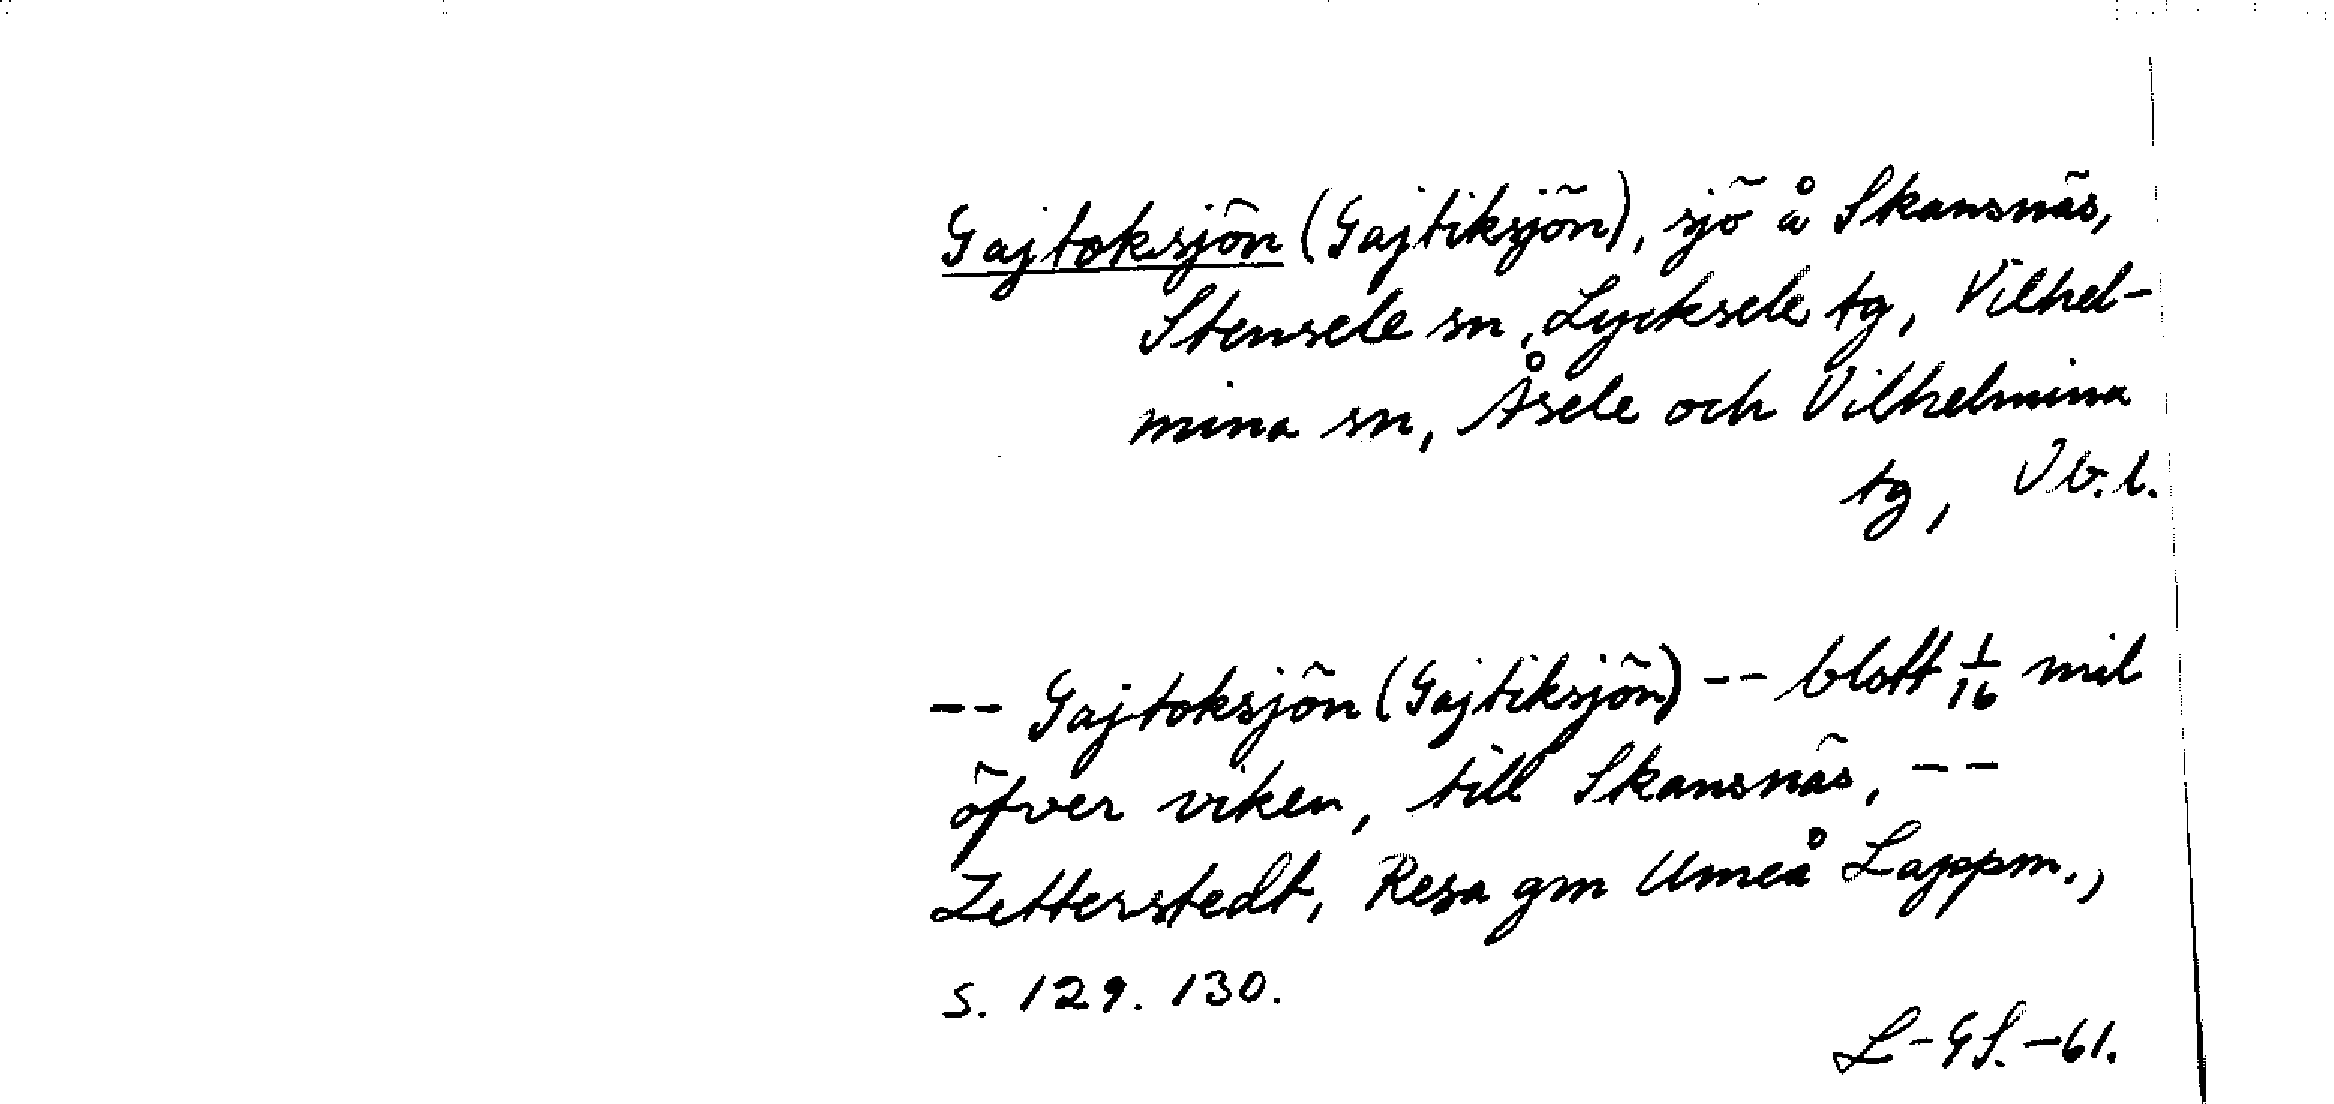 Gajtoksjön (Gajtiksjön), sjö å Skansnäs,
Stensele sn, Lycksele tg, Vilhel-
mina sn, Åsele och Vilhelmina
tg, Vb.l.
-- Gajtoksjön (Gajtiksjön) -- blott 1/16 mil
öfver viken, till Skansnäs, --
Zetterstedt, Resa gm Umeå Lappm.,
s. 129. 130.
L-GS.-61.